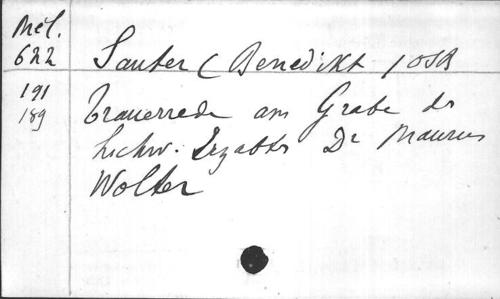 Mél.
622 Sauter (Benedikt) OSB
191 Trauerrede am Grabe ds
189 hochw. Erzabts Dr Maurus
Wolter